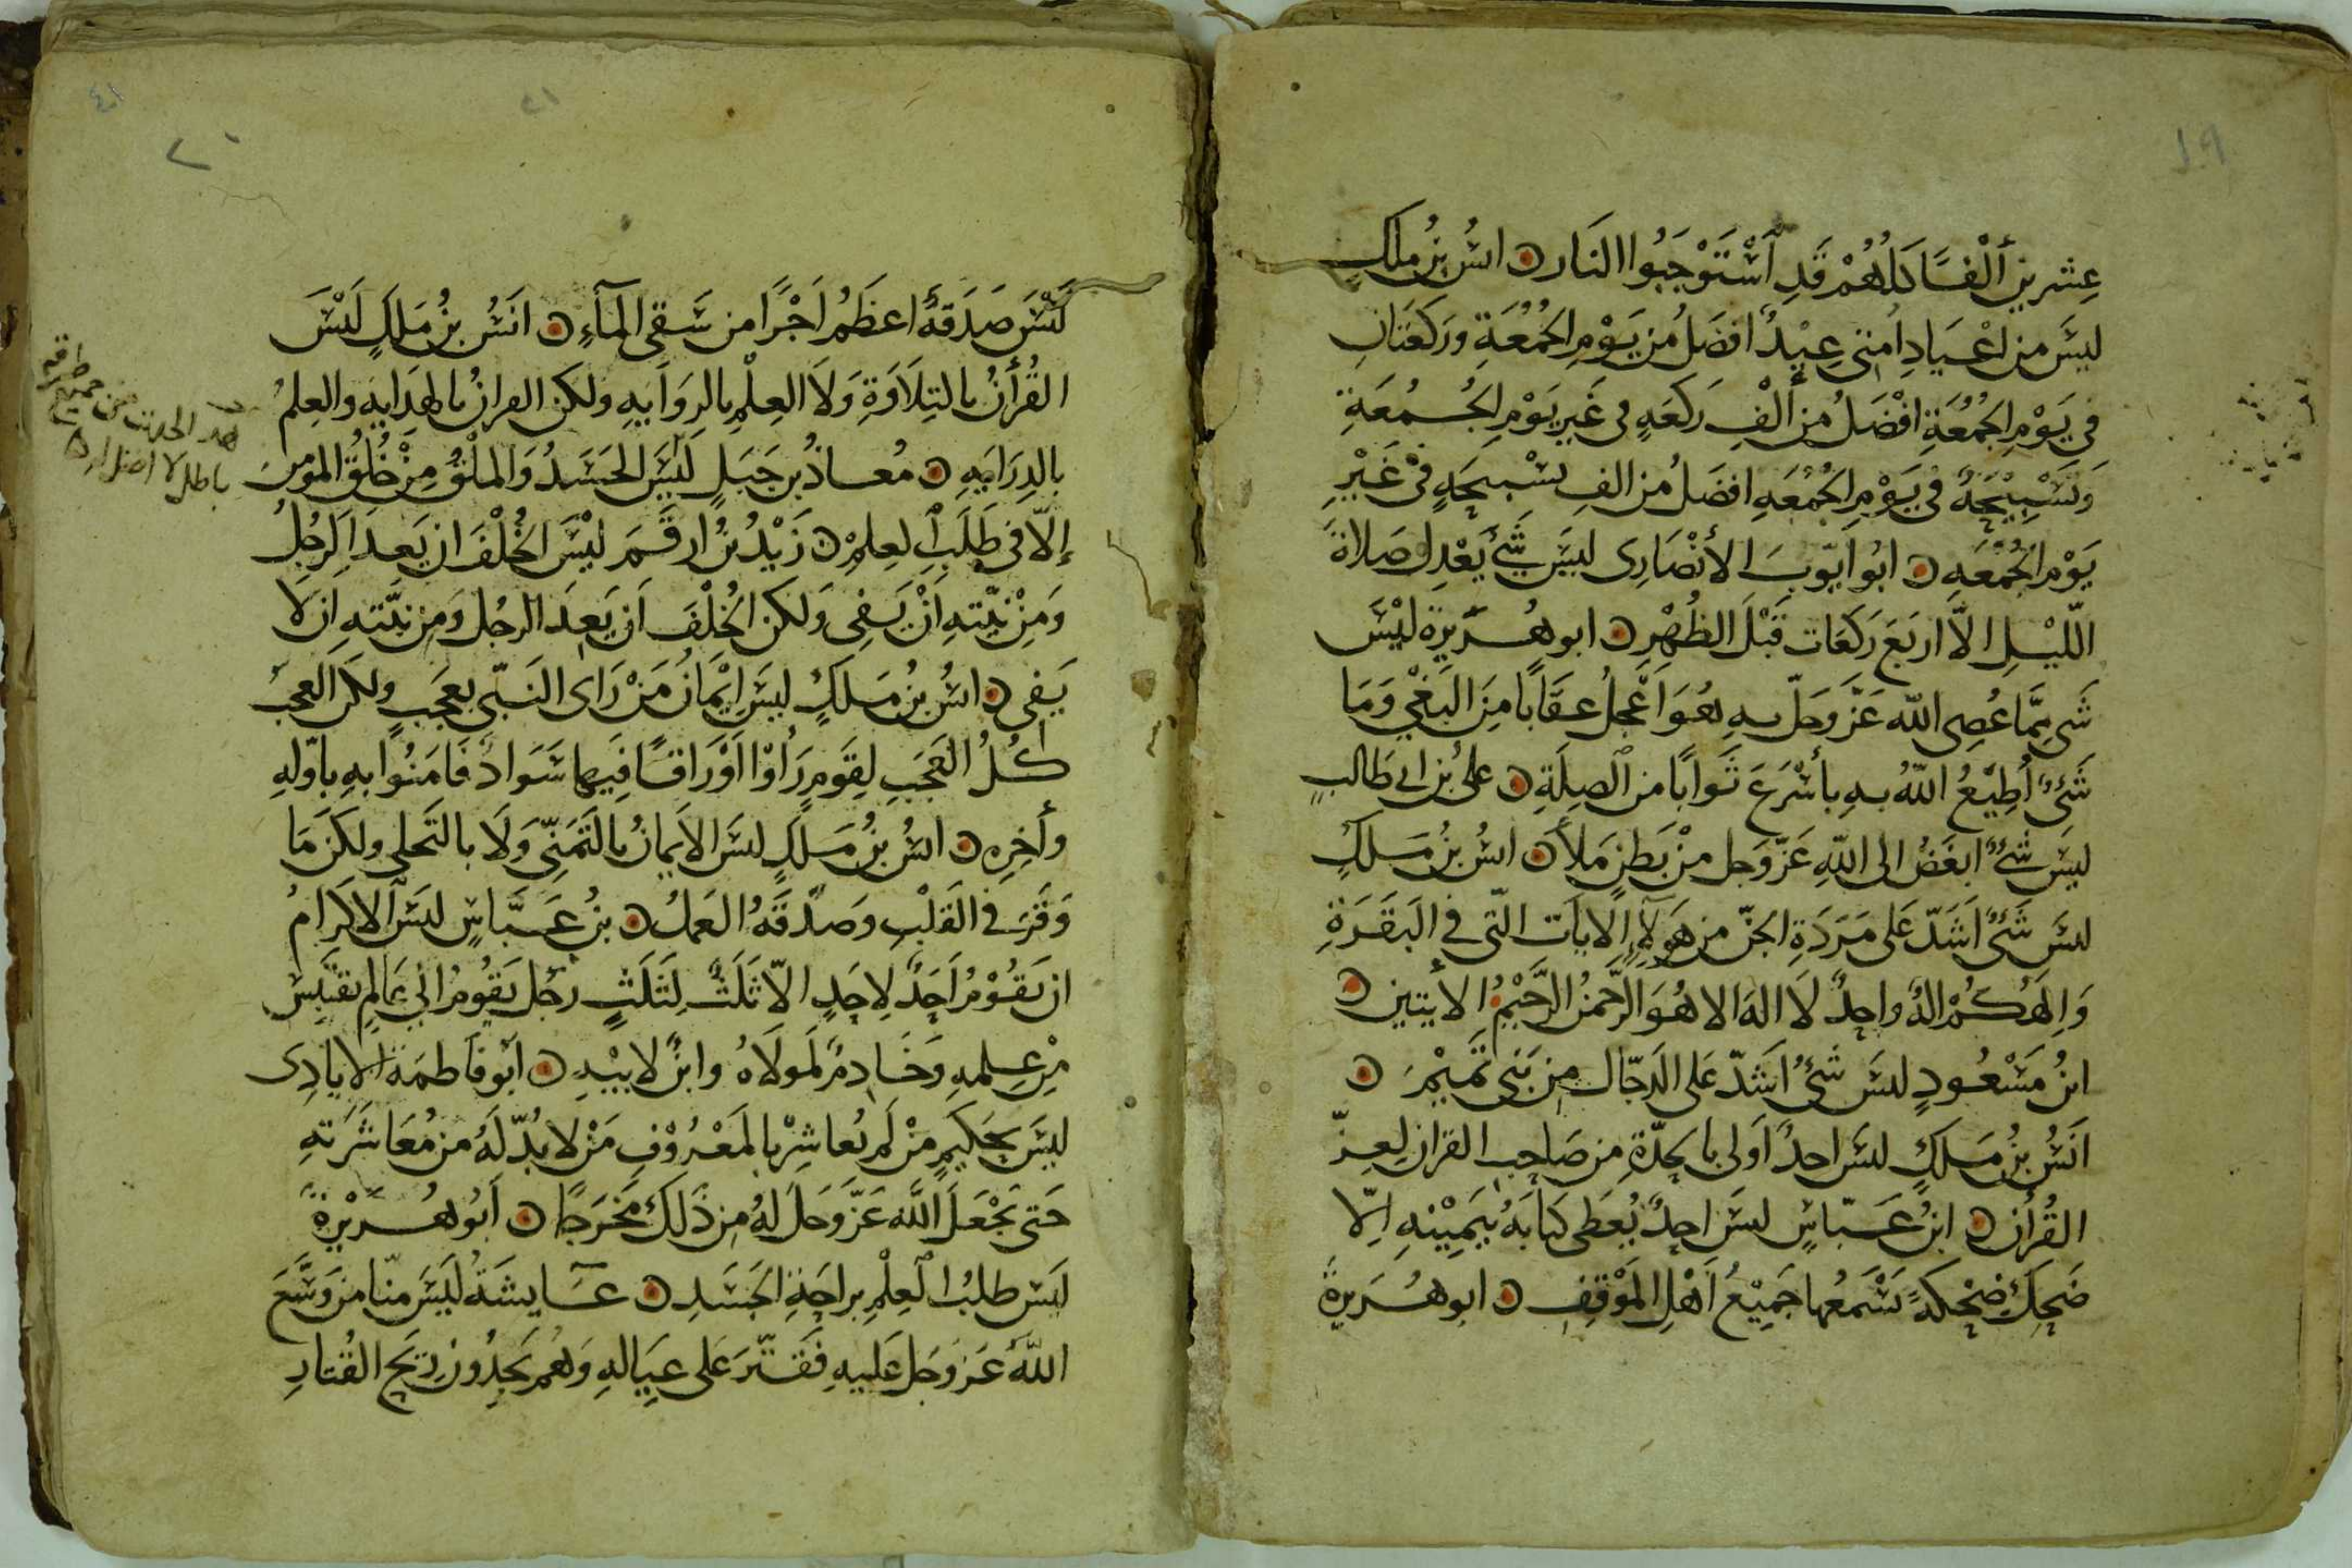 ١٩
عِشرين ألْفًا كلُّهُمْ قَدِ أسْتَوْجَبُوا النَار ن انسُ بنُ ملكٍ
ليسَ من اعْيَادِ امتى عِيْدٌ افضَلُ من يَوْمِ الجُمُعَةِ وركعَتانِ
في يَوْمِ الجُمُعَةِ افْضَلُ من ألْفِ رَكعَهٍ في غَيرِ يَوْمِ الجُمُعَةِ
وَتَسْبِيْحَةٌ في يَوْمِ الجُمُعَهِ افضَلُ من الفِ تسْبيحَةٍ في غَيْرِ
يَوْمِ الجُمُعَهِ ن ابُو ايّوبَ الأنْصَارِى ليسَ شَئٌ يَعْدِل صَلاةَ
اللّيْلِ الاّ اربَعَ ركعَات قَبْلَ الظُهْرِ ن ابو هُرَيرة ليْسَ
شَى مِمَّا عُصِى اللّه عَزَّ وَجَلّ به هُوَ اعْجلُ عقَابًا مِنَ البَغْي وَمَا
شَئٌ أُطِيْعُ اللّهُ بهِ بأسْرَعَ ثَوابًا من الصِلَةِ ن علىُ بن ابي طَالبٍ
ليسَ شئٌ ابغَضُ الى اللّهِ عَزّ وَجل منْ بَطنٍ مَلآن انسُ بنُ مَلكٍ
ليسَ شَئٌ اَشَدّ عَلى مَرَدَةِ الجنّ من هَولآءِ الاياَت التّى في البَقَرَةِ
وَالهُكُمْ الهٌ واحِدٌ لَا الهَ الا هُوَ الرَّحمنُ الرَّحيْمُ الأيتين ن
ابنُ مَسْعُودٍ ليسَ شَئٌ اَشَدّ عَلى الدَجّال من بَنى تَميْمَ ن
اَنَسُ بنُ مَلكٍ ليسَ احدٌ اَولى بالحِدّةِ من صَاحِب القران لِعِزّ
القُرأن ن ابنُ عَبّاسٍ ليسَ احِدٌ يُعطَى كتابَهُ بيَمِيْنهِ اِلّا
ضَحِكَ ضِحْكَهً يَسْمَعُها جَمِيْعُ اَهْلِ المَوْقِفِ ن ابو هُرَيرةَ
٢٠
ليْسَ صَدَقةٌ اعظَمُ اَجْرًا من سَقى المآءِ ن انَسُ بنُ مَلكٍ لَيْسَ
القُرأنُ بالتِلَاوَةِ وَلَا العِلْمِ بالرِوَايهِ ولكن القران بالهدَايه والعِلمُ
بالدِرَايهِ ن مُعاذُ بن جَبَلٍ لَيْسَ الحَسَدُ وَالملْقُ مِنْ خُلُق المومن
إلّا في طَلَبِ العِلمِ ن زَيْدُ بنُ ارقَمَ ليْسَ الخُلْفَ ان يَعدَ الرجُلُ
وَمِنْ نيّتهِ اَنْ يَفِى وَلكن الخُلْفَ اَن يَعِدَ الرجُل وَمِن نيّتهِ ان لَا
يَفى ن انسُ بنُ مَلكٍ ليسَ ايْمَانُ مَنْ رَاى النَبّى بعَجَبٍ ولكن العجَبَ
كُلُّ العَجَبِ لِقَومٍ رَأوْا اَوْرَاقًا فيها سَوَادٌ فَامَنُوا بهِ باَوّلهِ
وأخِرِهِ ن انسُ بنُ مَلكٍ ليسَ الاِيمانُ بالتَمَنّى وَلَا بالتَحلى ولكن مَا
وَقَرَ في القَلْبِ وَصَدّقَهُ العَملُ ن بنُ عَبَّاسٍ ليسَ الاكرامُ
ان يَقُوْمُ اَحَدٌ لاحَدٍ الاّ ثَلَثٌ لِثَلثٍ رجُل يَقُومُ الى عَالمٍ يقتَبِسُ
مِنْ عِلمهِ وَخَادِمٌ لمَولَاهُ وابنٌ لابيْهِ ن اَبو فَاطمَة الايادِى
ليسَ بحَكيمٍ منْ لم يُعاشِرْ بالمَعْرُوْفِ مَنْ لا بُدّ لَهُ من مُعَاشَرَتهِ
حَتى يَجْعَلَ اللَّه عَزّ وَجَلَّ لهُ من ذَلكَ مَخرَجًا ن اَبُو هُرَيْرَةَ
لَيسَ طلبُ العِلْمِ براحَةِ الجَسَدِ ن عَايشَةُ لَيْسَ منّا من وَسَّعَ
اللّهُ عَزّ وَجَل عَليهِ فَقَتّرَ عَلى عيَالهِ وَهُم يَجِدُونَ ريَح القُتارِ
هذا الحديث من جميع طرقه
باطل لا اصل له